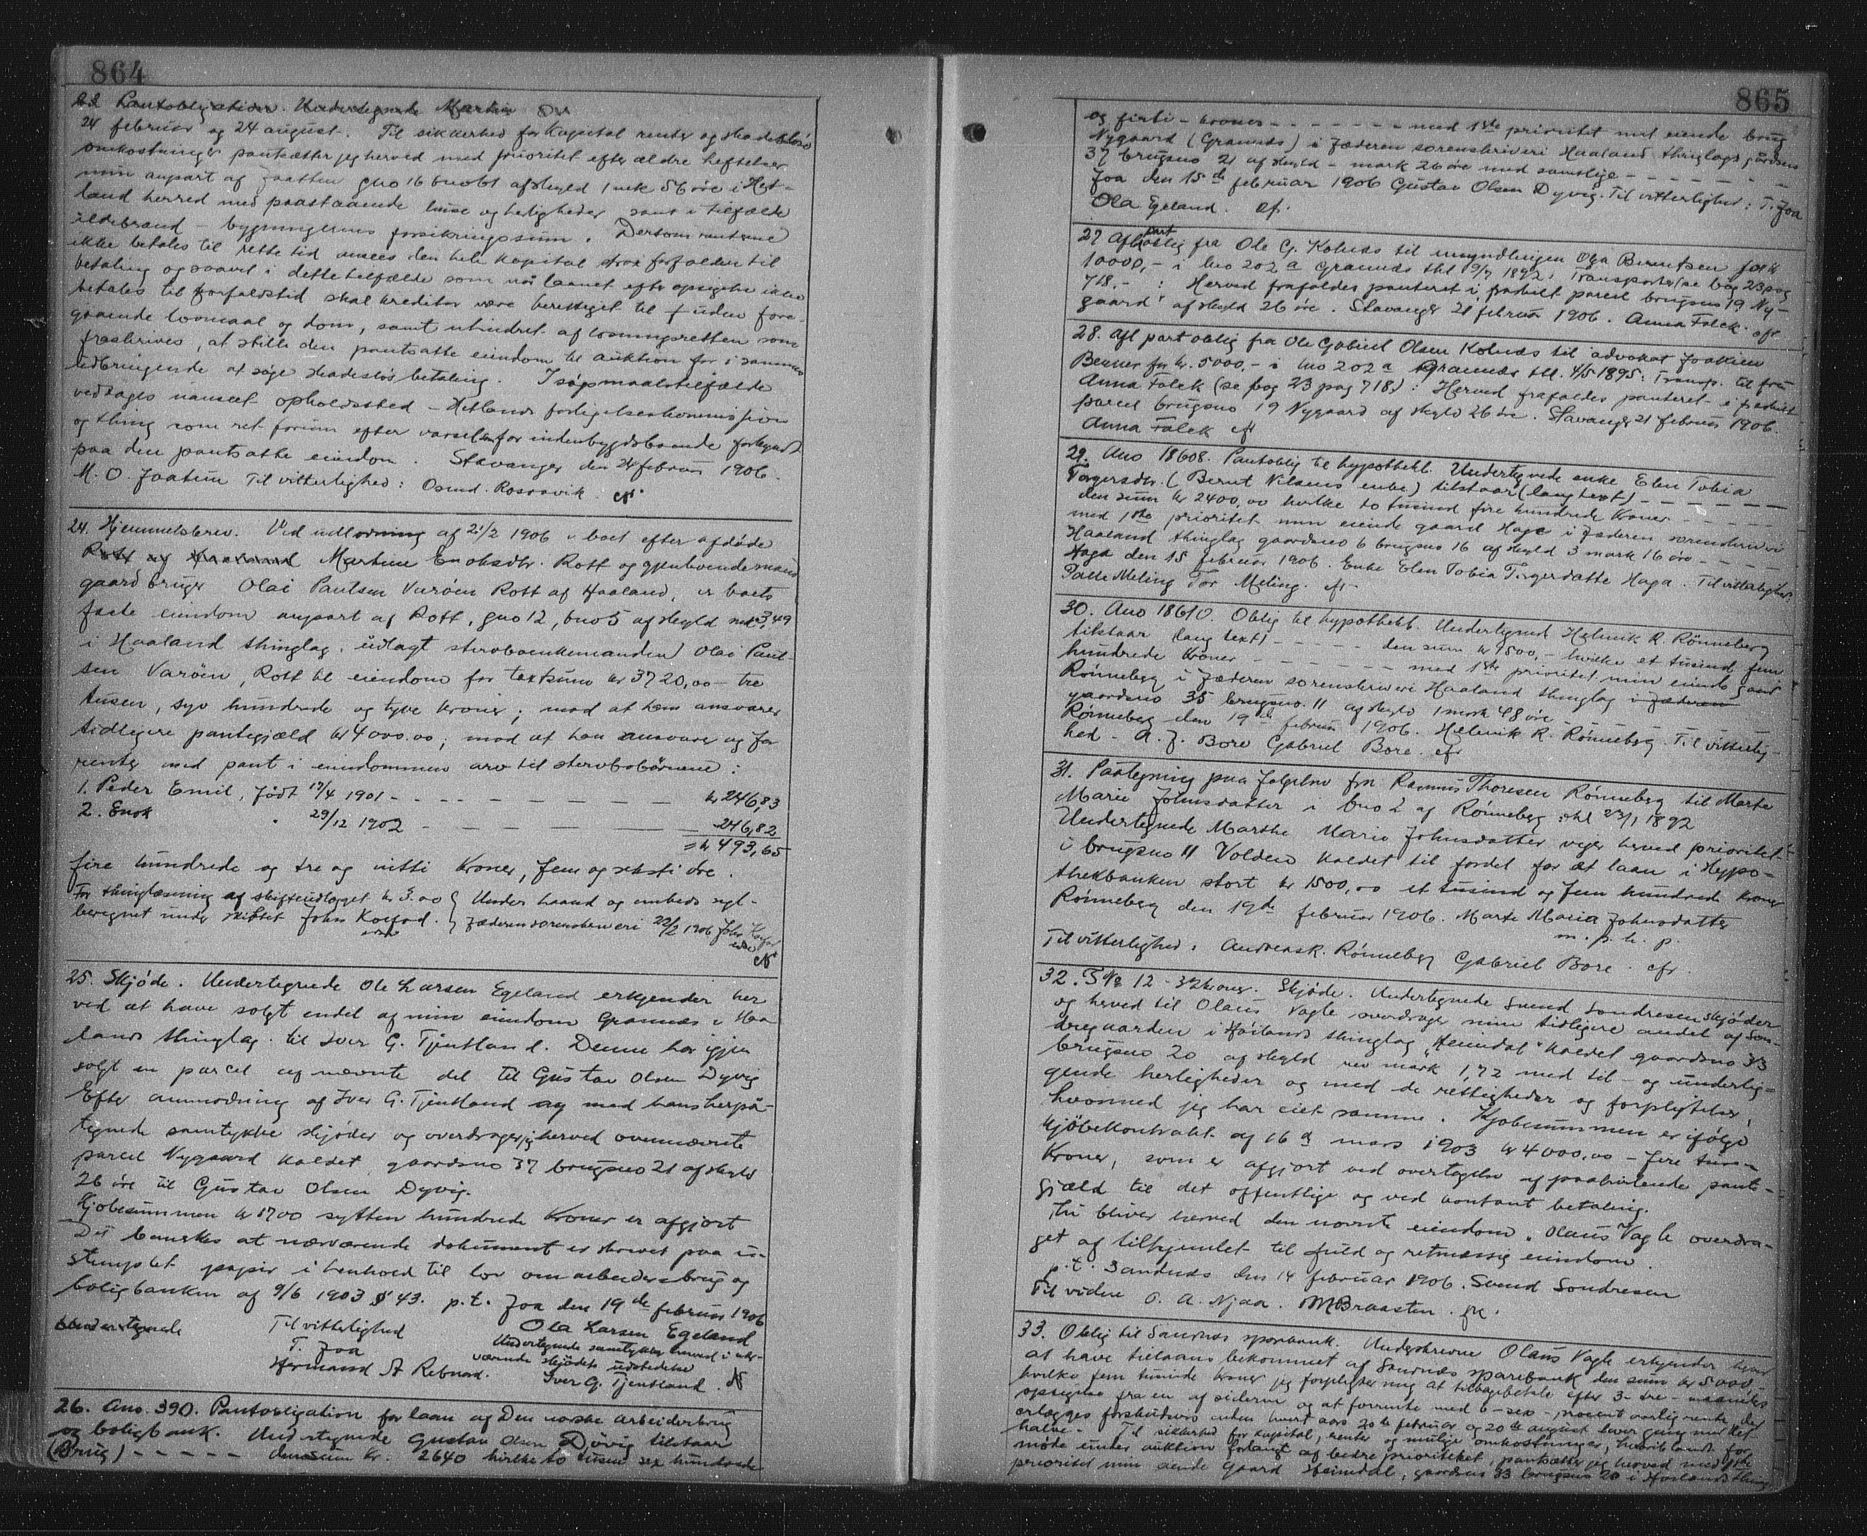 864
24 februar og 24 august. Til sikkerhed for kapital renter og skadesløs
omkostninger pantsætter jeg herved med prioritet efter ældre heftelser
min anpart af Jaatten gno 16 bno 61 af skyld 1 mk 56 øre i Het-
land herred med paastaaende huse og heligheder samt i tilfælde
ildebrand - bygningernes forsikringssum. Dersom renterne
ikke betales til rette tid ansees den hele kapital strax forfalden til
betaling og saavel i dette tilfælde som når laanet efter opsigelse ikke
betales til forfaldstid skal kreditor være berettiget til uden fore-
gaaende lovmaal og dom, samt uhindret af løsningsretten som
fraskrives, at stille den pantsatte eiendom til auktion for i sammes
udbringende at søge skadesløs betaling. I søgsmaalstilfælde
vedtages uanset opholdssted - Hetlands forligelseskommission
og thing som ret forum efter varsel for indenbygdsboende forkyndt
paa den pantsatte eiendom. Stavanger den 24 februar 1906.
M. O. Jaatun Til vitterlighed: Osmd. Rossavik.
24. Hjemmelsbrev. Ved udlodning af 21/2 1906 i boet efter afdøde
Martine Enoksdtr. Rott og gjenlevende mand
gaardbruger Olai Paulsen Varøen Rott af Haaland, er boets
faste eiendom anpart af Rott, gno 12, bno 5 af skyld mk 3,49
i Haaland thinglag, udlagt stervboenkemanden Olai Paul-
sen Varøen, Rott til eiendom for taxtsum kr 3720,00 - tre
tusen, syv hundrede og tyve kroner; mod at han ansvarer
tidligere pantegjæld kr 4000.00; mod at han ansvarer og for
renter med pant i eiendommen arv til stervbobørnene:
1. Peder Emil, født 17/4 1901 - - - - - - - - kr 246,83
2. Enok " 29/12 1902 - - - - - 246,82
= kr 493,65
fire hundrede og tre og nitti kroner, fem og seksti øre.
For thinglæsning af skifteudlægget kr 3.00 } Under haand og embeds segl-
beregnet under skiftet John Koefod. } Jæderen sorenskriveri 22/2 1906
25. Skjøde. Undertegnede Ole Larsen Egeland erkjender her
ved at have solgt endel af min eiendom Grannæs i Haa-
lands thinglag til Iver G. Tjentland. Denne har igjen
solgt en parcel af nævnte del til Gustav Olsen Dyvig
Efter anmodning af Iver G. Tjentland og med hans herpå-
tegnede samtykke skjøder og overdrager jeg herved ovennævnte
parcel Nygaard kaldet gaardsno 37 brugsno 21 af skyld
26 øre til Gustav Olsen Dyvig.
Kjøbesummen kr 1700 sytten hundrede kroner er afgjort
Det bemerkes at nærværende dokument er skrevet paa u-
stemplet papir i henhold til lov om arbeidersbrug og
boligbanken af 9/6 1903 § 43. p. t. Joa den 19de februar 1906
Til vitterlighed Ola Larsen Egeland
T. Joa Undertegnede samtykker herved i nær-
Hermand A Rebnord. værende skjødets udstedelse
Iver G. Tjentland.
26. Ano. 390. Pantobligation for laan af Den norske arbeiderbrug
og boligbank. Undertegnede Gustav Olsen Dyvig tilstaar
(Brug) - - - - - den sum kr. 2640 hvilke to tusind sex hundrede
865
og firti - kroner - - - - - - - med 1ste prioritet mit eiende brug
Nygaard (Grannæs) i Jæderen sorenskriveri Haaland thinglags gaardsno
37 brugsno 21 af skyld - mark 26 øre med samtlige - - - - - - -
Joa den 15de februar 1906 Gustav Olsen Dyvig. Til vitterlighed: T. Joa
Ola Egeland.
27 Afl partoblig fra Ole G. Kolnæs til umyndlingen Olga Berentsen for kr
10000,- i bno 202a Grannæs thl 19/7 1892: Transporter (se bog 23 pag
718.- : Herved frafaldes panteret i fraskilt parcel brugsno 19 Ny-
gaard af skyld 26 øre. Stavanger 21 februar 1906. Anna Falck.
28. Afl part oblig fra Ole Gabriel Olsen Kolnæs til advokat Joakim
Berner for kr. 5000,- i bno 202a Grannæs thl. 4/5 1895: Transp. til fru
Anna Falck (se bog 23 pag 718): Herved frafaldes panteret i fraskilt
parcel brugsno 19 Nygaard af skyld 26 øre. Stavanger 21 februar 1906.
Anna Falck
29. Ano 18608. Pantoblig til hypothekb. Undertegnede enke Elen Tobia
Torgersdtr. (Bernt Nilsens enke) tilstaar (lang text) - - - - -
den sum kr 2400,00 hvilke to tusind fire hundrede kroner - - - -
med 1ste prioritet min eiende gaard Haga i Jæderen sorenskriveri
Haaland thinglag gaardsno 6 brugsno 16 af skyld 3 mark 16 øre - - - -
Haga den 15 februar 1906. Enke Elen Tobia Torgersdatte Haga. Til vitterlighed:
Palle Meling Tor Meling.
30. Ano 18610. Oblig til hypothekb. Undertegnede Helmik R. Rønneberg
tilstaar (lang text) - - - - den sum kr 1500,- hvilke et tusind fem
hundrede kroner - - - - - - - med 1ste prioritet min eiende gaard
Rønneberg i Jæderen sorenskriveri Haaland thinglag i Jæderen
gaardsno 35 brugsno. 11 af skyld 1 mark 48 øre
Rønneberg den 19de februar 1906. Helmik R. Rønneberg. Til vitterlig-
hed - A. J. Bore Gabriel Bore.
31. Paategning paa følgebrev fra Rasmus Thoresen Rønneberg til Marte
Marie Johnsdatter i bno 2 af Rønneberg thl 23/1 1892
Undertegnede Marthe Marie Johnsdatter viger herved prioritet
i brugsno 11 Volden kaldet til fordel for et laan i Hypo-
thekbanken stort kr 1500,00 et tusind og fem hundrede kroner
Rønneberg den 19de februar 1906. Marte Maria Johnsdatter
m. p. h. p.
Til vitterlighed: Andreas K. Rønneberg Gabriel Bore.
32. 12 - 32 kroner. Skjøde. Undertegnede Svend Sondresen skjøder
og herved til Olaus Vagle overdrager min tidligere andel af Son-
dregaarden i Høilands thinglag "Heimdal" kaldet gaardsno 33
brugsno 20 af skyld rev mark 1,72 med til - og underlig-
gende herligheder og med de rettigheder og forpligtelser,
hvormed jeg har eiet samme. Kjøbesummen er ifølge
kjøbekontrakt af 16d mars 1903 kr 4000,00 - fire tusen
kroner, som er afgjort ved overtagelse af paahvilende pante-
gjæld til det offentlige og ved kontant betaling.
Thi bliver herved den nævnte eiendom Olaus Vagle overdra-
get og tilhjemlet til fuld og retmæssig eiendom.
p.t. Sandnæs den 14 februar 1906. Svend Sondresen
Til vidne O. A. Njaa. M Braasten.
33. Oblig til Sandnæs sparebank. Underskrevne Olaus Vagle erkjender herved
at have tillaans bekommet af Sandnæs sparebank den sum kr 5000
hvilke fem tusinde kroner jeg forpligter mig at tilbagebetale efter 3 - tre - maaneders
opsigelse fra en af siderne og at forrente med 6 - sex - procent aarlig rente, der
erlægges forskudsvis inden hvert aars 20de februar og 20de august hver gang med det
halve. Til sikkerhed for kapital, renter og mulige omkostninger, heriblandt for
møde under auktion forlangt af bedre prioriteret, pantsætter jeg herved med 1ste
prioritet min eiende gaard Heimdal, gaardsno 33 brugsno 20 i Høilands thing